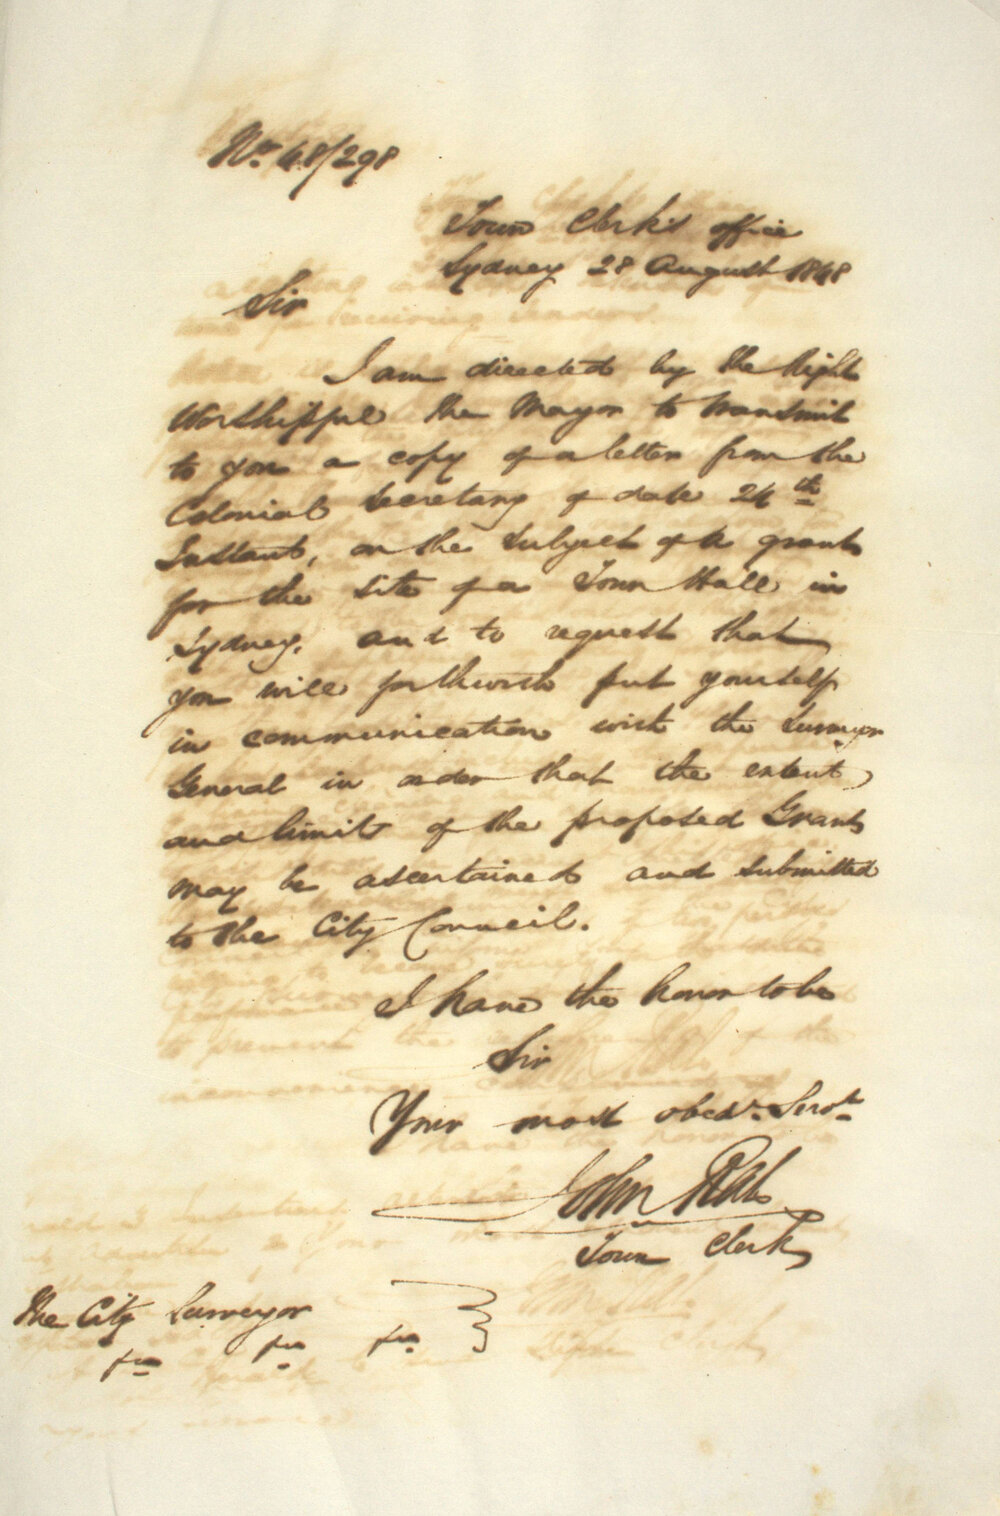 No. 48/298
Town Clerk's office
Sydney 28 August 1848
Sir
I am directed by the Right
Worshipful the Mayor to transmit
to you a copy of a letter from the
Colonial Secretary of date 24th
Instant, on the subject of a grant
for the Site of a Town Hall in
Sydney, and to request that
you will forthwith put yourself
in communication with the Surveyor
General in order that the extent
and limit of the proposed Grant
may be ascertained and submitted
to the City Council.
I have the honor to be
Sir
Your most obedt. Servt.
John Rae
Town Clerk
The City Surveyor